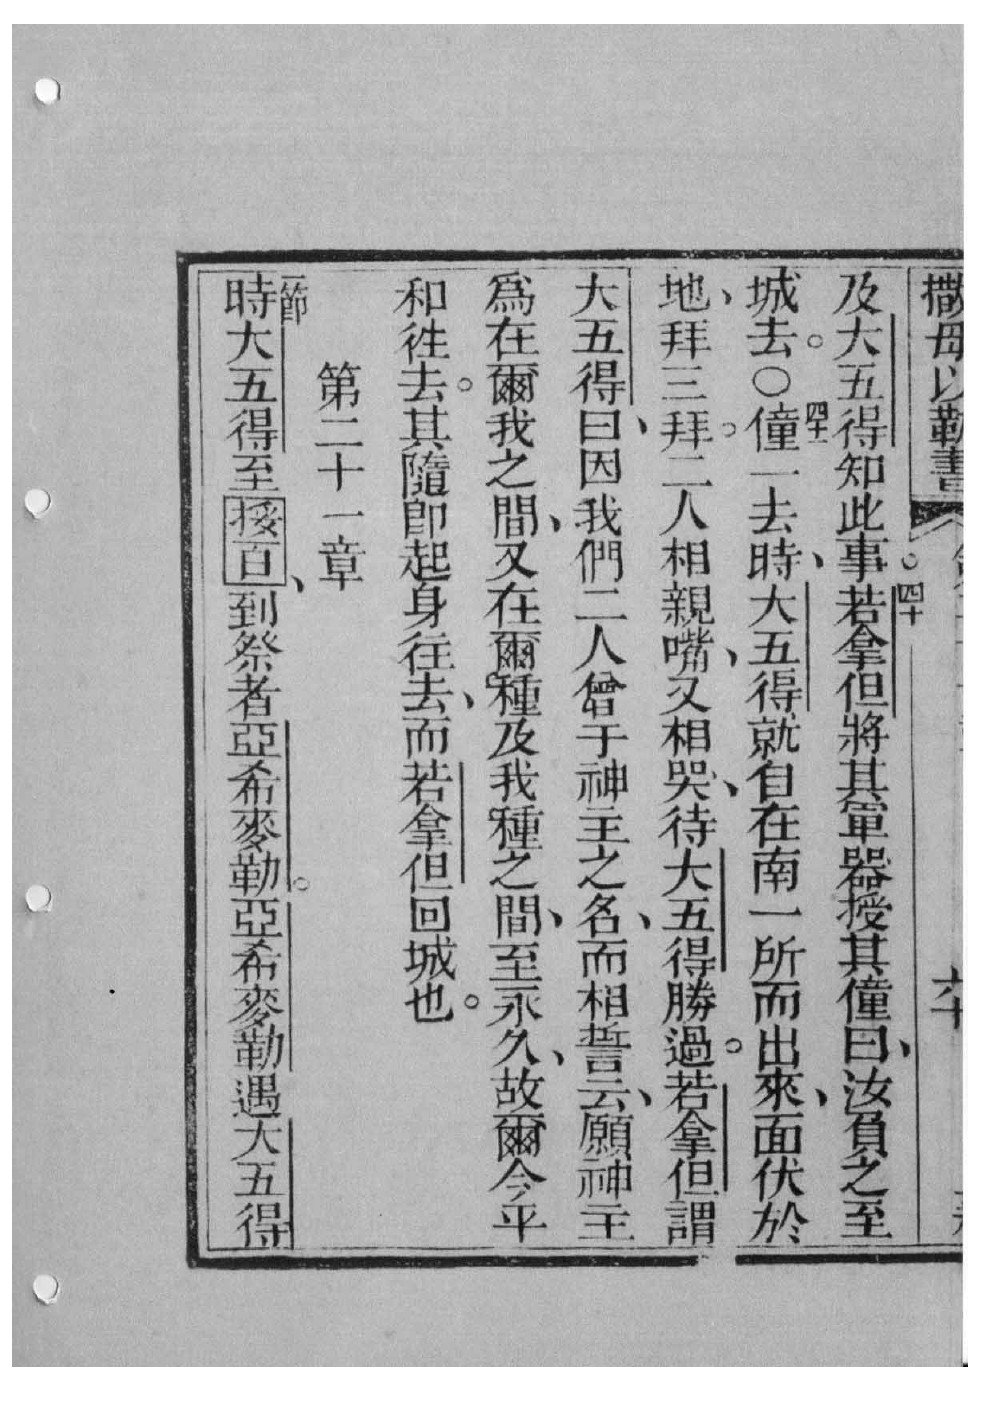 撒母以勒書
六十
及大五得知此事。四十若拿但將其軍器授其僮曰、汝負之至
城去。〇四十一僮一去時、大五得就自在南一所而出來、面伏於
地、拜三拜。二人相親嘴、又相哭、待大五得勝過。若拿但謂
大五得、曰因我們二人曾于神主之名、而相誓云、願神主
爲在爾我之間、又在爾種及我種之間、至永久、故爾今平
和徃去。其隨卽起身往去、而若拿但回城也。
第二十一章
一節時大五得至挼百、到祭者亞希麥勒。亞希麥勒遇大五得